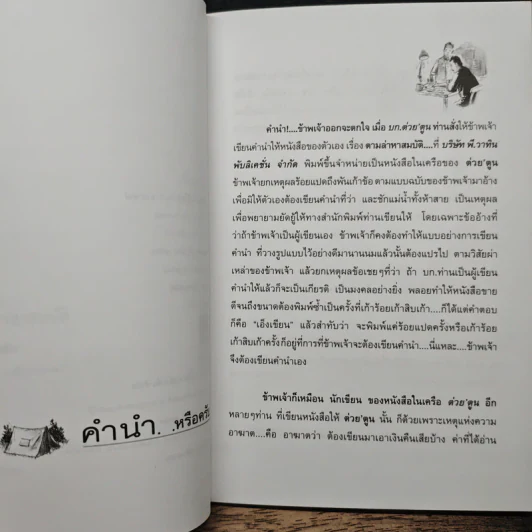 คำนำ. .หรือคร
คำนำ!....ข้าพเจ้าออกจะตกใจ เมื่อ บก.ต่วย'ตูน ท่านสั่งให้ข้าพเจ้า
เขียนคำนำให้หนังสือของตัวเอง เรื่อง ตามล่าหาสมบัติ....ที่ บริษัท พี.วาทิน
พับลิเคชั่น จำกัด พิมพ์ขึ้นจำหน่ายเป็นหนังสือในเครือของ ต่วย'ตูน
ข้าพเจ้ายกเหตุผลร้อยแปดถึงพันเก้าข้อ ตามแบบฉบับของข้าพเจ้ามาอ้าง
เพื่อมิให้ตัวเองต้องเขียนคำนำที่ว่า และชักแม่น้ำทั้งห้าสาย เป็นเหตุผล
เพื่อพยายามยัดยู้ให้ทางสำนักพิมพ์ท่านเขียนให้ โดยเฉพาะข้ออ้างที่
ว่าถ้าข้าพเจ้าเป็นผู้เขียนเอง ข้าพเจ้าก็คงต้องทำให้แบบอย่างการเขียน
คำนำ ที่วางรูปแบบไว้อย่างดีมานานนมแล้วนั้นต้องแปรไป ตามวิสัยผ่า
เหล่าของข้าพเจ้า แล้วยกเหตุผลข้อเชยๆที่ว่า ถ้า บก.ท่านเป็นผู้เขียน
คำนำให้แล้วก็จะเป็นเกียรติ เป็นมงคลอย่างยิ่ง พลอยทำให้หนังสือขาย
ดีจนถึงขนาดต้องพิมพ์ซ้ำเป็นครั้งที่เก้าร้อยเก้าสิบเก้า....ก็ได้แต่คำตอบ
ก็คือ "เอ็งเขียน" แล้วสำทับว่า จะพิมพ์แค่ร้อยแปดครั้งหรือเก้าร้อย
เก้าสิบเก้าครั้งก็อยู่ที่การที่ข้าพเจ้าจะต้องเขียนคำนำ....นี่แหละ....ข้าพเจ้า
จึงต้องเขียนคำนำเอง
ข้าพเจ้าก็เหมือน นักเขียน ของหนังสือในเครือ ต่วย'ตูน อีก
หลายๆท่าน ที่เขียนหนังสือให้ ต่วย'ตูน นั้น ก็ด้วยเพราะเหตุแห่งความ
อาฆาต....คือ อาฆาตว่า ต้องเขียนมาเอาเงินคืนเสียบ้าง ค่าที่ได้อ่าน